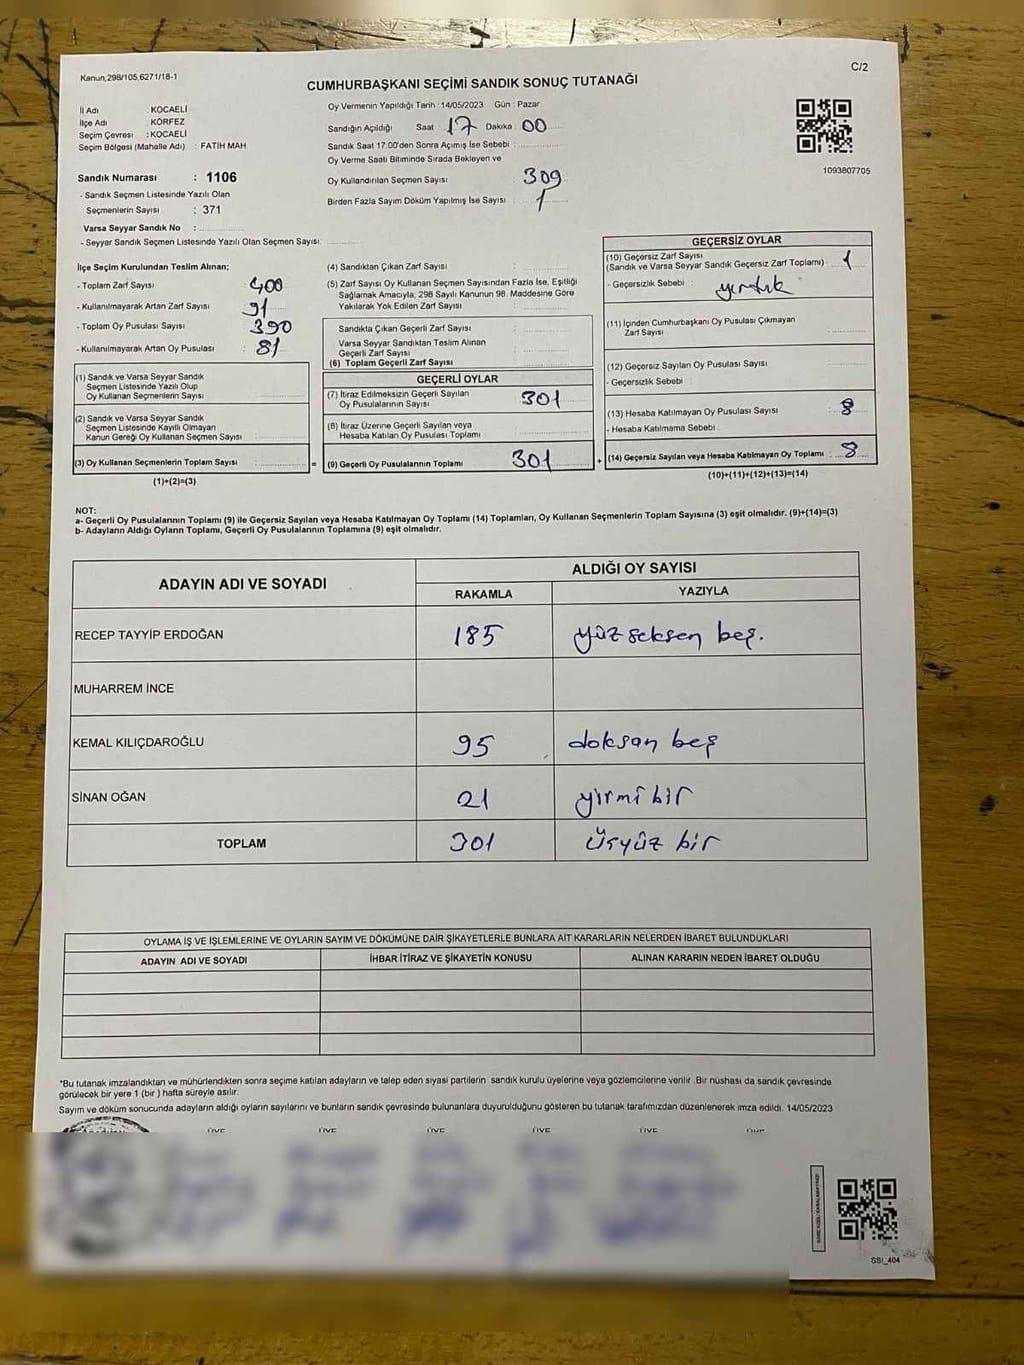 Kanun;298/105,6271/18-1
C/2
CUMHURBAŞKANI SEÇİMİ SANDIK SONUÇ TUTANAĞI
İl Adı : KOCAELİ
İlçe Adı : KÖRFEZ
Seçim Çevresi : KOCAELİ
Seçim Bölgesi (Mahalle Adı) : FATİH MAH.
Oy Vermenin Yapıldığı Tarih :14/05/2023 Gün : Pazar
Sandığın Açıldığı Saat : 17 Dakika : 00
Sandık Saat 17:00'den Sonra Açımış İse Sebebi :
Oy Verme Saati Bitiminde Sırada Bekleyen ve
Oy Kullandırılan Seçmen Sayısı : 309
Birden Fazla Sayım Döküm Yapılmış İse Sayısı : 1
1093807705
Sandık Numarası : 1106
- Sandık Seçmen Listesinde Yazılı Olan
Seçmenlerin Sayısı : 371
Varsa Seyyar Sandık No :
- Seyyar Sandık Seçmen Listesinde Yazılı Olan Seçmen Sayısı:
İlçe Seçim Kurulundan Teslim Alınan;
- Toplam Zarf Sayısı : 400
- Kullanılmayarak Artan Zarf Sayısı : 91
- Toplam Oy Pusulası Sayısı : 390
- Kullanılmayarak Artan Oy Pusulası : 81
(1) Sandık ve Varsa Seyyar Sandık
Seçmen Listesinde Yazılı Olup
Oy Kullanan Seçmenlerin Sayısı :
(2) Sandık ve Varsa Seyyar Sandık
Seçmen Listesinde Kayıtlı Olmayan
Kanun Gereği Oy Kullanan Seçmen Sayısı :
(3) Oy Kullanan Seçmenlerin Toplam Sayısı :
(1)+(2)=(3)
(4) Sandıktan Çıkan Zarf Sayısı :
(5) Zarf Sayısı Oy Kullanan Seçmen Sayısından Fazla İse, Eşitliği
Sağlamak Amacıyla; 298 Sayılı Kanunun 98. Maddesine Göre
Yakılarak Yok Edilen Zarf Sayısı :
Sandıkta Çıkan Geçerli Zarf Sayısı :
Varsa Seyyar Sandıktan Teslim Alınan
Geçerli Zarf Sayısı :
(6) Toplam Geçerli Zarf Sayısı
GEÇERLİ OYLAR
(7) İtiraz Edilmeksizin Geçerli Sayılan
Oy Pusulalarının Sayısı : 301
(8) İtiraz Üzerine Geçerli Sayılan veya
Hesaba Katılan Oy Pusulası Toplamı :
= (9) Geçerli Oy Pusulalarının Toplamı : 301
GEÇERSİZ OYLAR
(10) Geçersiz Zarf Sayısı
(Sandık ve Varsa Seyyar Sandık Geçersiz Zarf Toplamı) : 1
- Geçersizlik Sebebi : yırtık
(11) İçinden Cumhurbaşkanı Oy Pusulası Çıkmayan
Zarf Sayısı :
(12) Geçersiz Sayılan Oy Pusulası Sayısı :
- Geçersizlik Sebebi :
(13) Hesaba Katılmayan Oy Pusulası Sayısı : 8
- Hesaba Katılmama Sebebi :
+ (14) Geçersiz Sayılan veya Hesaba Katılmayan Oy Toplamı : 8
(10)+(11)+(12)+(13)=(14)
NOT:
a- Geçerli Oy Pusulalarının Toplamı (9) ile Geçersiz Sayılan veya Hesaba Katılmayan Oy Toplamı (14) Toplamları, Oy Kullanan Seçmenlerin Toplam Sayısına (3) eşit olmalıdır. (9)+(14)=(3)
b- Adayların Aldığı Oyların Toplamı, Geçerli Oy Pusulalarının Toplamına (9) eşit olmalıdır.
ADAYIN ADI VE SOYADI ALDIĞI OY SAYISI
RAKAMLA YAZIYLA
RECEP TAYYİP ERDOĞAN 185 yüz seksen beş.
MUHARREM İNCE
KEMAL KILIÇDAROĞLU 95 doksan beş
SİNAN OĞAN 21 yirmi bir
TOPLAM 301 üçyüz bir
OYLAMA İŞ VE İŞLEMLERİNE VE OYLARIN SAYIM VE DÖKÜMÜNE DAİR ŞİKAYETLERLE BUNLARA AİT KARARLARIN NELERDEN İBARET BULUNDUKLARI
ADAYIN ADI VE SOYADI İHBAR İTİRAZ VE ŞİKAYETİN KONUSU ALINAN KARARIN NEDEN İBARET OLDUĞU
*Bu tutanak imzalandıktan ve mühürlendikten sonra seçime katılan adayların ve talep eden siyasi partilerin sandık kurulu üyelerine veya gözlemcilerine verilir .Bir nüshası da sandık çevresinde
görülecek bir yere 1 (bir ) hafta süreyle asılır.
Sayım ve döküm sonucunda adayların aldığı oyların sayılarını ve bunların sandık çevresinde bulunanlara duyurulduğunu gösteren bu tutanak tarafımızdan düzenlenerek imza edildi. 14/05/2023
ÜYE ÜYE ÜYE ÜYE ÜYE ÜYE
SSI_404